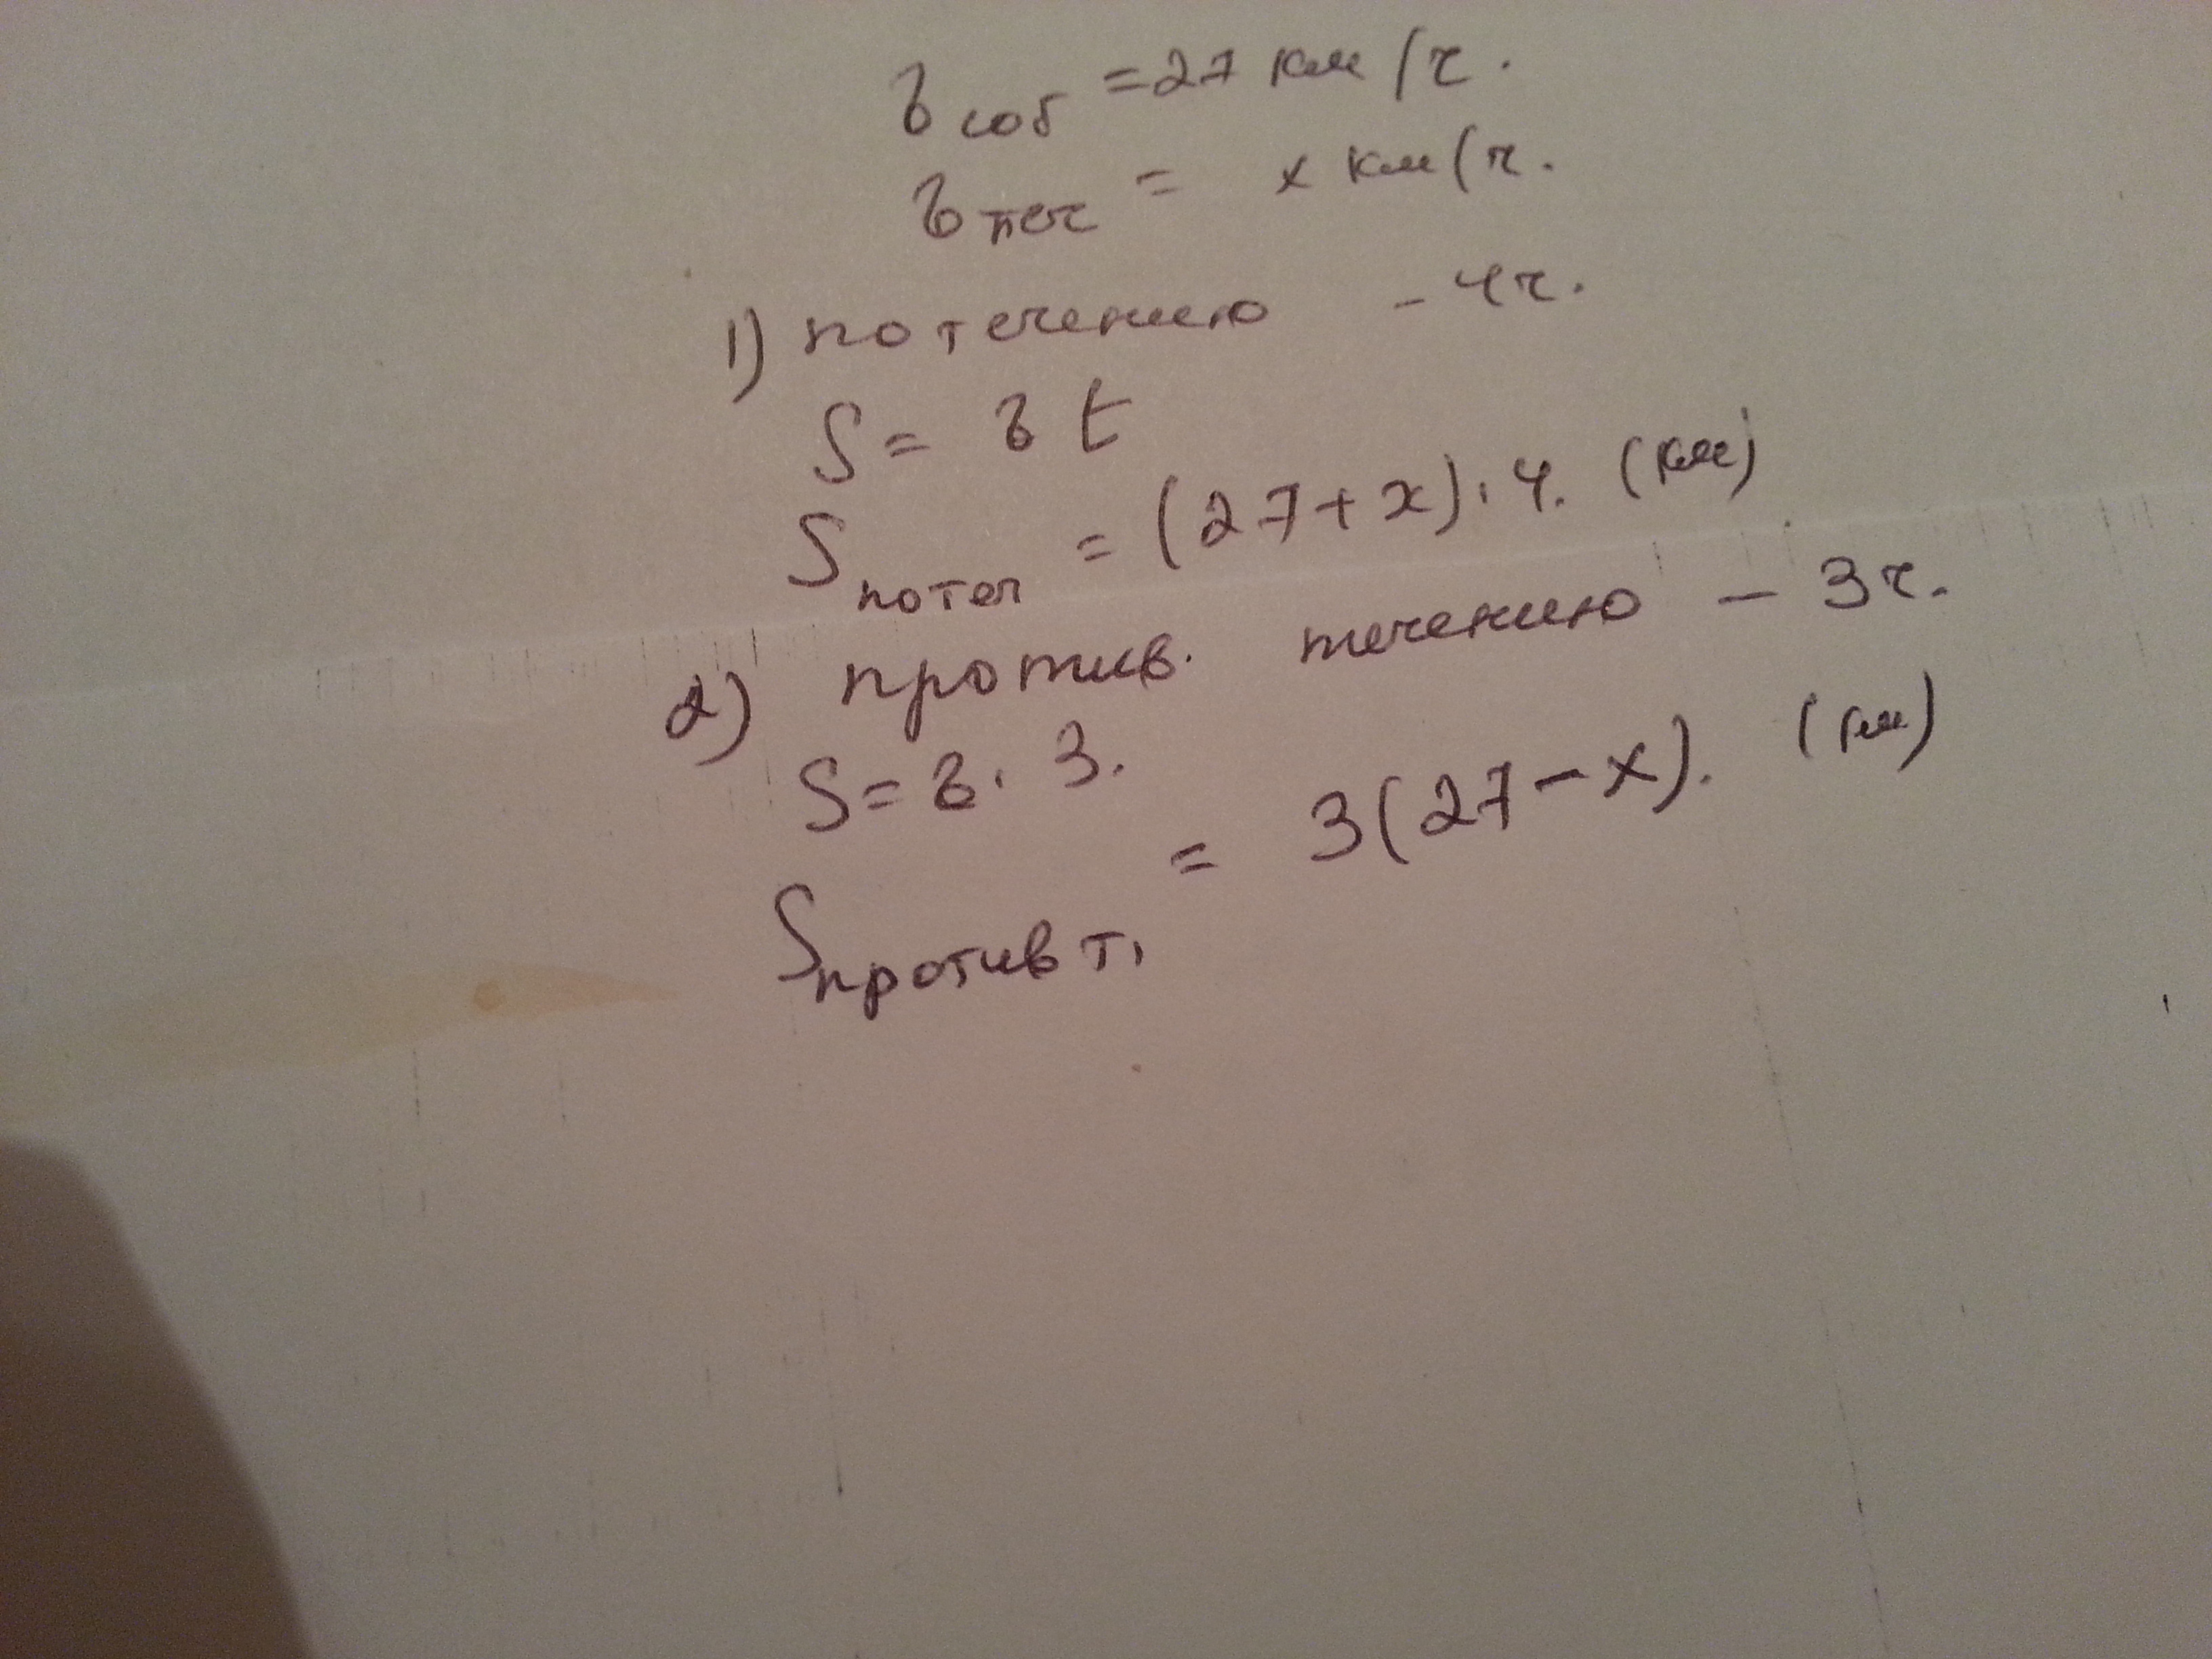 v соб = 27 км/ч.
v теч = x км/ч.
1) по течению – 4ч.
S = v t
S по теч = (27+x)·4. (км)
2) против. течению – 3ч.
S = v · 3.
S против т. = 3(27–x). (км)